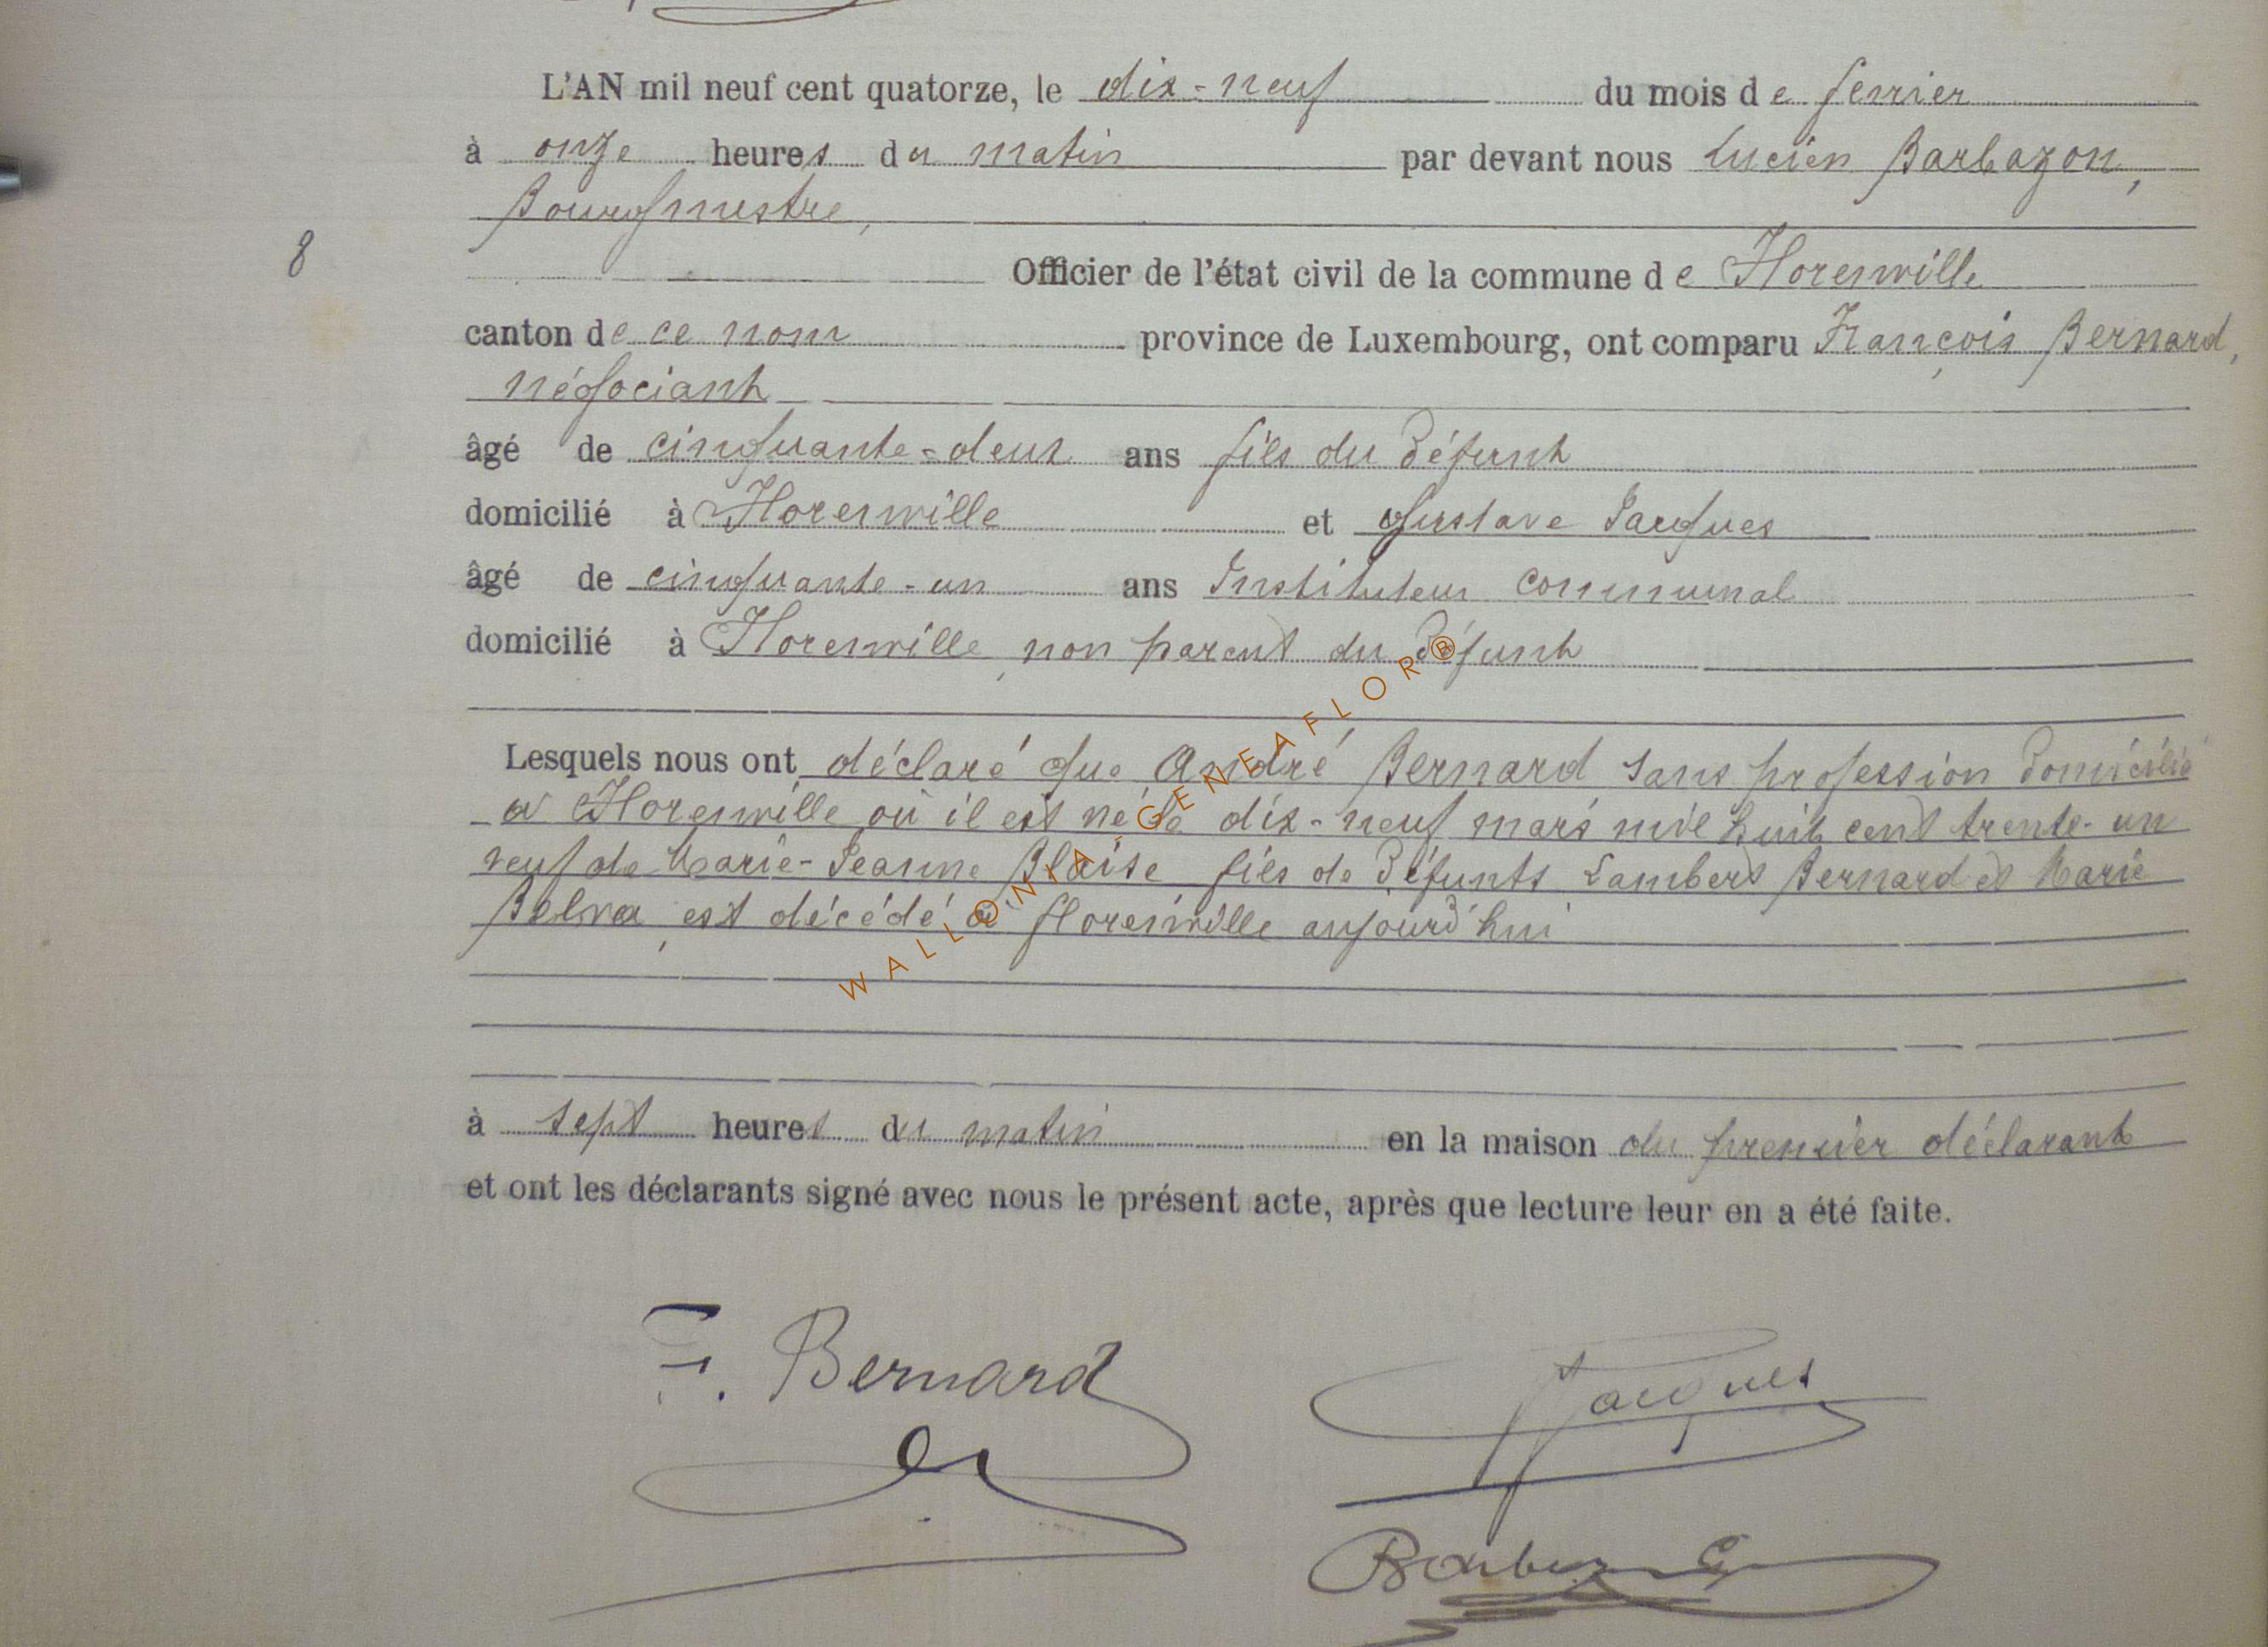 L'AN mil neuf cent quatorze, le dix-neuf du mois de février
à onze heures du matin par devant nous Lucien Barbazon,
Bourgmestre,
8
Officier de l'état civil de la commune de Florenville
canton de ce nom province de Luxembourg, ont comparu François Bernard,
négociant
âgé de cinquante-deux ans fils du défunt
domicilié à Florenville et Gustave Jacques
âgé de cinquante-un ans Instituteur communal
domicilié à Florenville, non parent du défunt
Lesquels nous ont déclaré que André Bernard sans profession domicilié
à Florenville où il est né le dix-neuf mars mil huit cent trente-un
veuf de Marie-Jeanne Blaise fils de défunts Lambert Bernard et Marie
Belva, est décédé à florenville aujourd'hui
WALLONIA-GENEAFLOR®
à sept heures du matin en la maison du premier déclarant
et ont les déclarants signé avec nous le présent acte, après que lecture leur en a été faite.
F. Bernard
Jacques